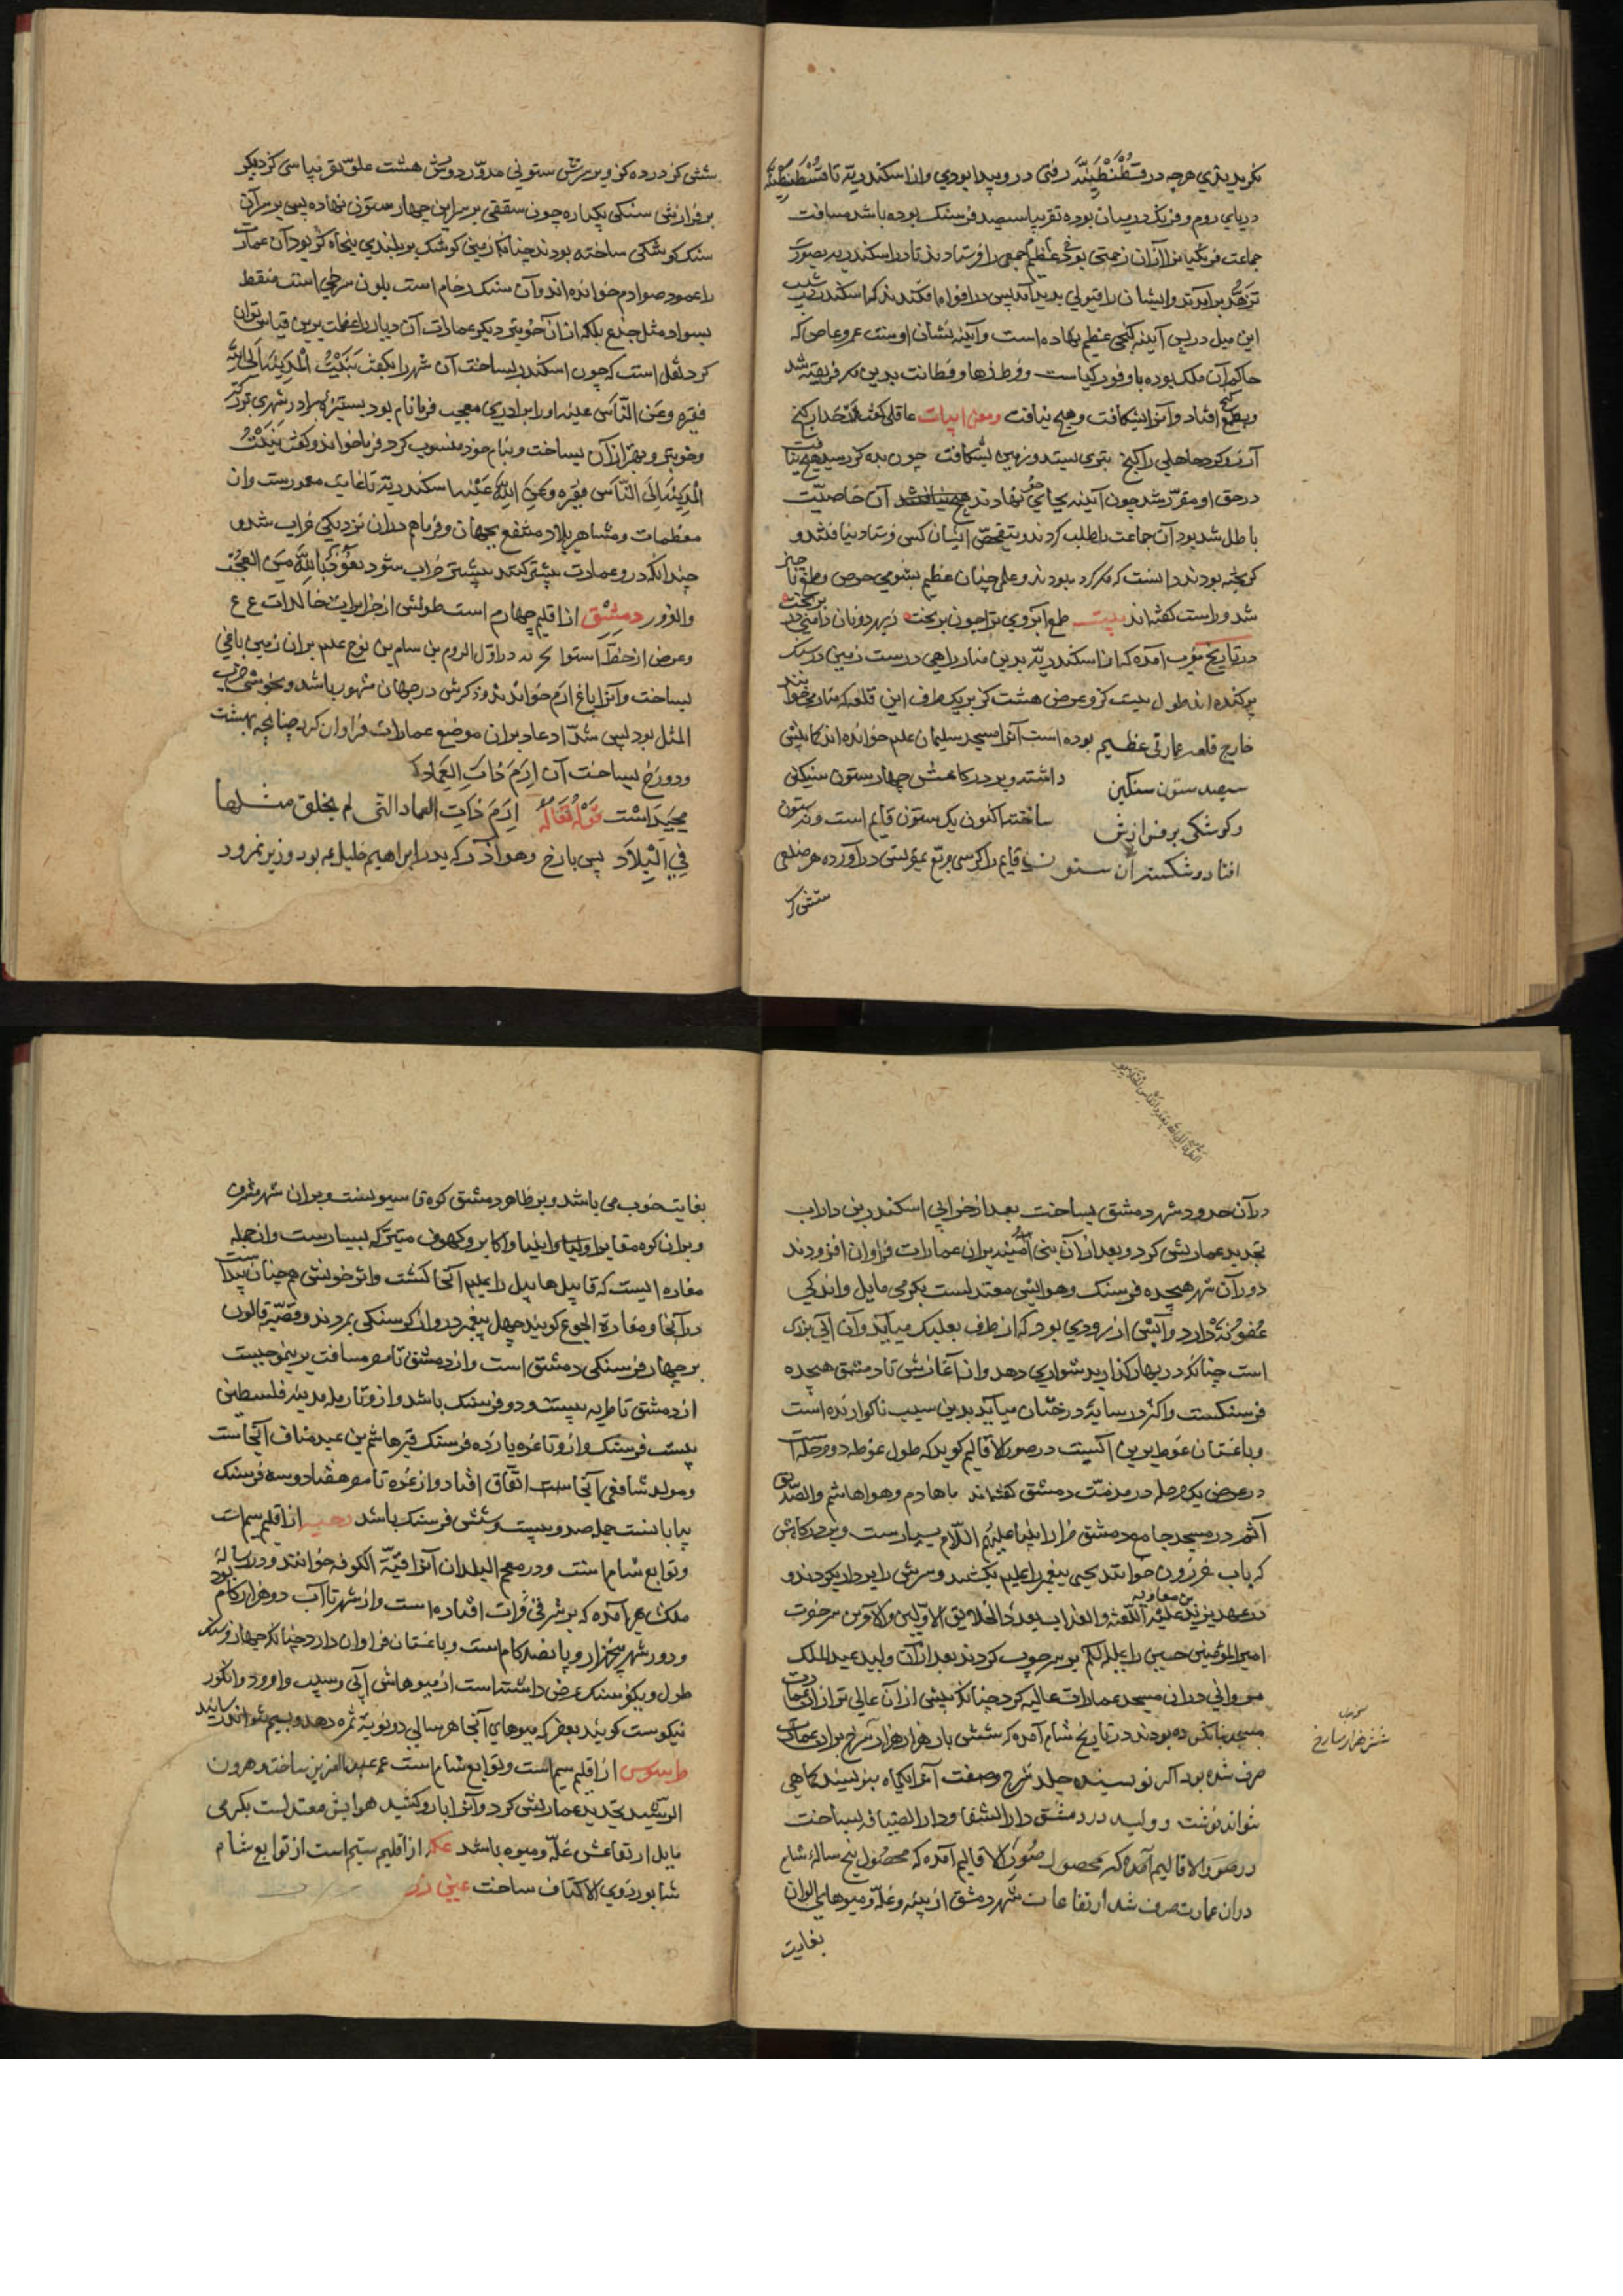 بکریدیذی هرچه در قسطنطینیّه رفتی در و پیدا بودی و از اسکندریّه تا قسطنطنیّه
دریای روم و فرنک در میان بوده تقریبا سیصد فرسنک بوده باشد مسافت
جماعت فرنکیانرا ازان زحمتی بودی عظیم جمعی را فرستادند تا در اسکندریه بصورت
تزهّد برآمدند و ایشان را قبولی پدید آمد پس در افواه افکندند که اسکندر
این میل در پس آینه کنجی عظیم نهاده است و آینه نشان اوست عمرو عاص که
حاکم آن ملک بوده با وفور کیاست و فرط دها و فطانت بدین مکر فریفته شد
و بطمع کنج افتاد و آنرا بشکافت و هیچ نیافت عاقلی کفت
آرزو کرد جاهلی را کنج بتوی ستد و زمین بشکافت چون بدو کرد سید هیچ نیافت
در حق او مقرّر شد چون آینه بجای خود نهادند آن خاصیّت
باطل شده بود آن جماعت را طلب کردند و بتفحّص ایشان کس فرستاد نیافتند و
کریخته بودند دانست که مکر کرده بودند و عملی چنان عظیم بشومی حرص و طمع ناچیز
شد و راست کفته‌اند بیت طمع آبروی
در تاریخ مغرب آمده که از اسکندریّه بدین منار راهی درست زمین در سنک
بر کنده‌اند طول بیست کز و عرض هشت کز بر یک طرف این قلعه که منار میخوانند
خارج قلعه عمارتی عظیم بوده است آنرا مسجد سلیمان علیم خوانده‌اند
سیصد ستون سنکین داشته و بر درکاهش چهار ستون سنکین
و کوشکی بر فرازش ساخته اکنون یک ستون قایم است و سه ستون
افتاده و شکسته آن ستون قایم را کرسی مربّع درآورده هر ضلعی
شش کز
شش کز در ده کز و بر سرش ستونی مدوّر دورش هشت علوّ قریب سی کز دیکر
بر فرازش سنکی یکپاره چون سقفی بر سر این چهار ستون نهاده پس بر سر آن
سنک کوشکی ساخته بودند چنانکه زمین کوشک بر بلندی پنجاه کز بود آن عمارت
را عمود صوادم خوانده‌اند و آن سنک رخام است بلون سرخی است منقط
بسواد مثل جزع بلکه ازان خوبتر و دیکر عمارات آن دیار را عظمت برین قیاس توان
کرد نقل است که چون اسکندر بساخت آن شهر را بکفت بَنَیْتُ الْمَدِینَةَ اِلَی اللّه
فقیره و عن النّاس غنیه او را برادری معجب فرما نام بود بستیزه برادر شهری بزرکتر
و خوبتر و بهتر از آن بساخت و بنام خود منسوب کرد فرما خواند و کفت بَنَیْتُ
الْمَدِینَةَ اِلَی النّاس فقیره و عن اللّه غنیه اسکندریّه تا غایت معمورست و از
معظمات و مشاهیر بلاد متنفع بجهان و فرما هم دران نزدیکی خراب شد و
چندانکه درو عمارت بیشتر کنند بیشتر خراب شود نعوذ باللّه من العجب
والغرور دمشق از اقلیم چهارم است طولش از جزایر خالدات ع ع
و عرض از خطّ استوا در اوّل ارم بن سام بن نوح علیم بران زمین باغی
بساخت و آنرا باغ ارم خواندند و ذکرش در جهان مشهور باشد و بخوشی ضرب
المثل بود پس شدّاد عاد بران موضع عمارات فراوان کرد چنانچه بهشت
و دوزخ بساخت آن ارم ذات العماد که
قوله تعالی ارم ذات العماد التی لم یخلق مثلها
فی البلاد پس بارخ و هو آذر که پدر ابراهیم خلیل عم بود وزیر نمرود
در آن حدود شهر دمشق بساخت بعد از خرابی اسکندر بن داراب
تجدید عمارتش کرد و بعد ازان بنی امیّه بران عمارات فراوان افزودند
دور آن شهر هیجده فرسنک و هوایش معتدلست بکرمی مایل و اندکی
عفونة دارد و آبش از رودی بود که از طرف بعلبک میآید و آن آبی بزرک
است چنانکه در بهار کذار بدشواری دهد و از آغازش تا دمشق هیجده
فرسنکست و اکثر در سایهٔ درختان میآید بدین سبب ناکوارنده است
و باغستان غوطه برین آبست در صور الاقالیم کوید که طول غوطه دو مرحله است
در عرض یک مرحله در مذمّت دمشق کفته‌اند
آثم در مسجد جامع دمشق مزار انبیا علیهم السّلام بسیارست و بر درکاهش
که باب خوانند یحیی پیغمبر را علیم بکشتند و سرش را بر دار کردند و
در عهد یزید بن معاویه علیه اللّعنة و العذاب بعدد الخلایق الاوّلین و الآخرین سر حضرت
امیرالمؤمنین حسین را علیه السّلم بر سر چوب کردند بعد ازان ولید عبدالملک
مروانی دران مسجد عمارات عالیه کرد چنانکه پیش ازان عالی‌تر ازان عمارت
مسجد نساخته بودند در تاریخ شام آمده که شش بار هزار هزار سرخ بران عمارت
صرف شده بود اکر نویسنده جلد شرح و صفت آنرا یکماه بنویسند کماهی
نتواند نوشت و ولید در دمشق دارالشفا و دارالضیافه بساخت
در صور الاقالیم آمده که محصول پنج سالهٔ شام
دران عمارت صرف شد ارتفاعات شهر دمشق از پنبه و غلّه و میوهای الوان
بغایت
شش هزار هزار سرخ
بغایت خوب می باشد و بر ظاهر دمشق کوه قاسیونست و بران شهر مشرف
و بران کوه مقابر اولیا و انبیا و اکابر و کهوف متبرّکه بسیارست و ازجمله
مغاره ایست که قابیل هابیل را علیم آنجا کشت و اثر خونش همچنان پیداست
در آنجا و مغارة الجوع کویند چهل پیغمبر درو از کرسنکی بمردند و قصّهٔ قارون
بر چهار فرسنکی دمشق است و از دمشق تا مصر مسافت برینموجبست
از دمشق تا طبریه بیست و دو فرسنک باشد و ازو تا رمله مدینه فلسطین
بیست فرسنک و ازو تا غزه یازده فرسنک قبر هاشم بن عبد مناف آنجاست
و مولد شافعی آنجا اتّفاق افتاد و از غزه تا مصر هفتاد و سه فرسنک
بیابانست جمله صد و بیست و شش فرسنک باشد رحبه از اقلیم سیم است
و توابع شام است و در معجم البلدان آنرا قبّة الکوفه خوانند و در رسالهٔ
ملکشاهی آمده که بر شرقی فرات افتاده است و از شهر تا آب دو هزار کام بود
و دور شهر پنجهزار و پانصد کام است و باغستان فراوان دارد چنانکه چهار فرسنک
طول و یکفرسنک عرض داشته است از میوهاش آبی و سیب و امرود و انکور
نیکوست کویند بعضی که میوهای آنجا هر سالی دو نوبة ثمره دهد و بسیم نتواند رسانید
طرسوس از اقلیم سیم است و توابع شام است عمر عبدالعزیز ساخت و هرون
الرّشید تجدید عمارتش کرد و آنرا بارو کشید هوایش معتدلست بکرمی
مایل ارتفاعش غلّه و میوه باشد عکه از اقلیم سیم است از توابع شام
شاپور ذوی الاکتاف ساخت عین زر